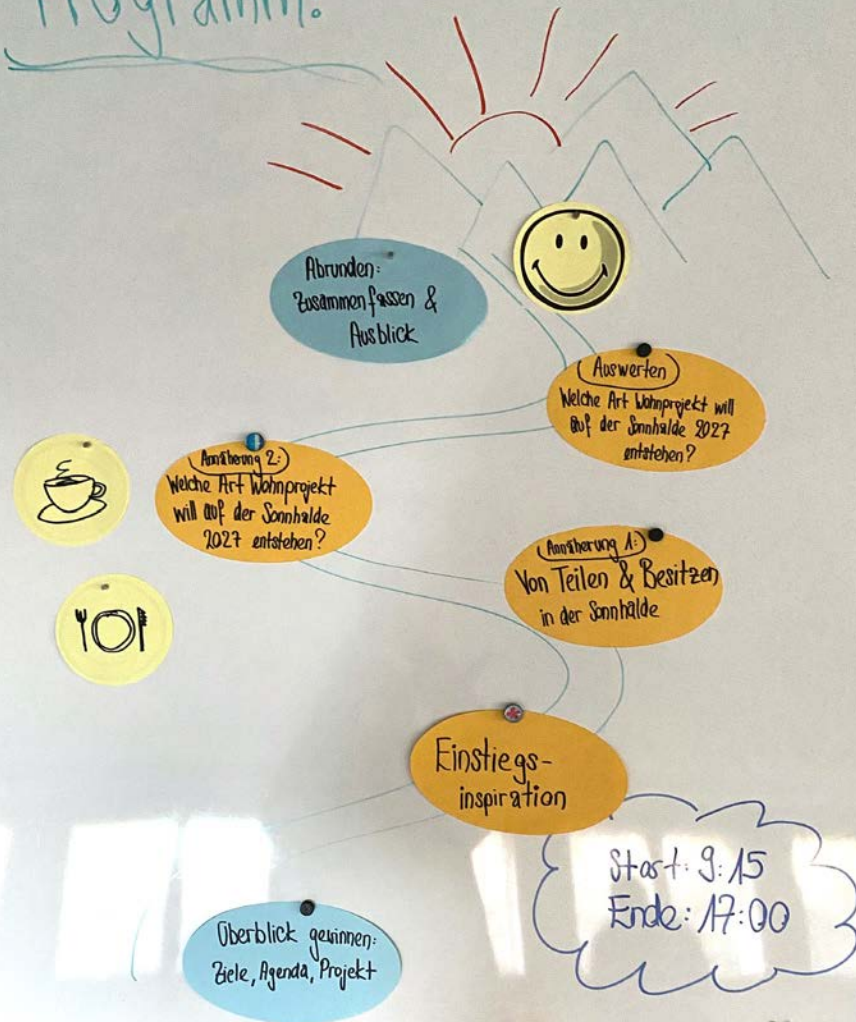 Programm:
Abrunden:
Zusammenfassen &
Ausblick
Auswerten
Welche Art Wohnprojekt will
auf der Sonnhalde 2027
entstehen?
Annäherung 2:
Welche Art Wohnprojekt
will auf der Sonnhalde
2027 entstehen?
Annäherung 1:
Von Teilen & Besitzen
in der Sonnhalde
Einstiegs-
inspiration
Start: 9:15
Ende: 17:00
Überblick gewinnen:
Ziele, Agenda, Projekt